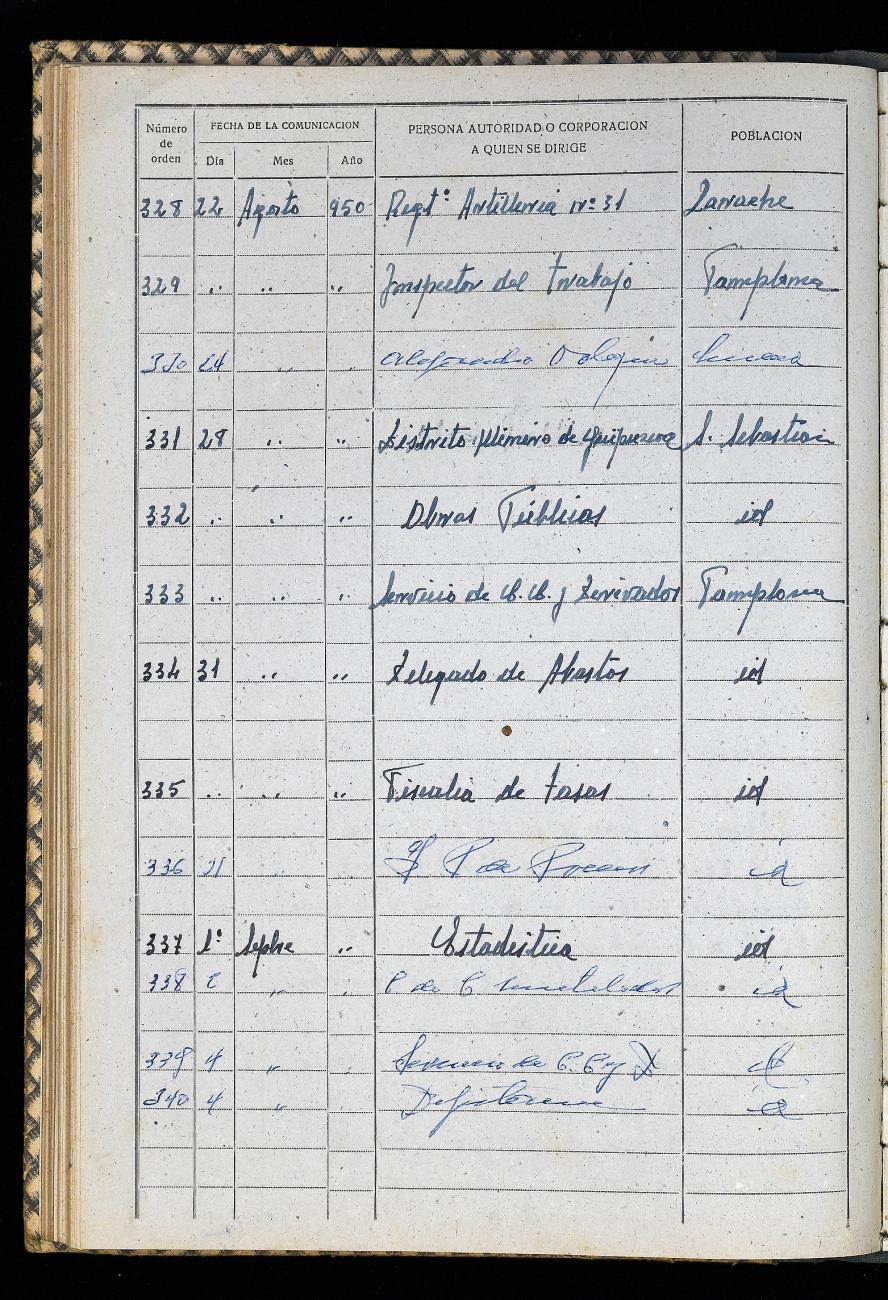 Número de orden FECHA DE LA COMUNICACION PERSONA AUTORIDAD O CORPORACION A QUIEN SE DIRIGE POBLACION
Día Mes Año
328 22 Agosto 950 Regtº Artilleria nº 31
329 .. .. .. Inspector del trabajo Pamplona
330 24 .. ..
331 28 .. .. Distrito Minero de Guipuzcoa S. Sebastian
332 .. .. .. Obras Públicas id
333 .. .. .. Servicio de C. C. y Derivados Pamplona
334 31 .. .. Delegado de Abastos id
335 .. .. .. Fiscalia de tasas id
336 31 id
337 1º Sepbre .. Estadistica id
338 .. .. C de C id
339 4 .. .. Servicio de C. C y D id
340 4 .. id